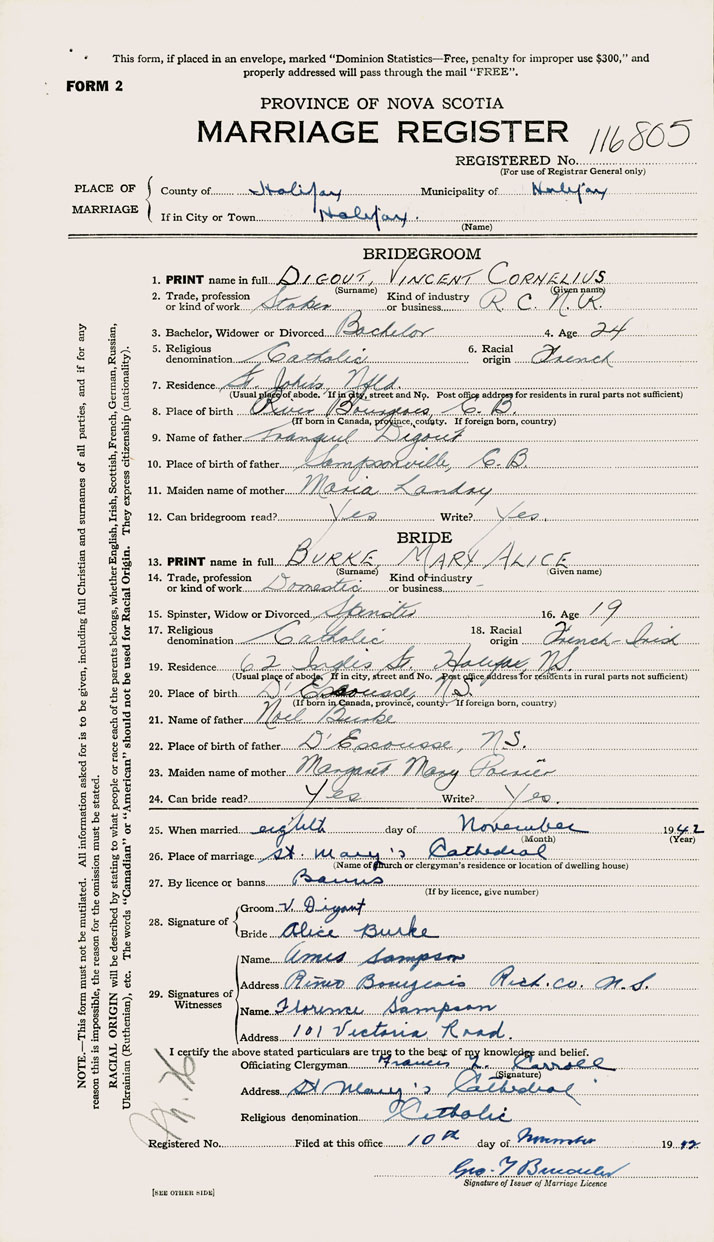 This form, if placed in an envelope, marked "Dominion Statistics—Free, penalty for improper use $300," and
properly addressed will pass through the mail "FREE".
FORM 2
PROVINCE OF NOVA SCOTIA
MARRIAGE REGISTER 116805
REGISTERED No.
(For use of Registrar General only)
PLACE OF MARRIAGE
County of Halifax Municipality of Halifax
If in City or Town Halifax.
(Name)
BRIDEGROOM
1. PRINT name in full DIGOUT, VINCENT CORNELIUS
(Surname) (Given name)
2. Trade, profession or kind of work Stoker Kind of industry or business R. C. N. R.
3. Bachelor, Widower or Divorced Bachelor 4. Age 24
5. Religious denomination Catholic 6. Racial origin French
7. Residence St. John's, Nfld.
(Usual place of abode. If in city, street and No. Post office address for residents in rural parts not sufficient)
8. Place of birth River Bourgeois, C. B.
(If born in Canada, province, county. If foreign born, country)
9. Name of father Tranquil Digout
10. Place of birth of father Sampsonville, C.B.
11. Maiden name of mother Maria Landry
12. Can bridegroom read? Yes Write? Yes.
BRIDE
13. PRINT name in full BURKE, MARY ALICE
(Surname) (Given name)
14. Trade, profession or kind of work Domestic Kind of industry or business -
15. Spinster, Widow or Divorced Spinster 16. Age 19
17. Religious denomination Catholic 18. Racial origin French-Irish
19. Residence 62 Inglis St. Halifax, N.S.
(Usual place of abode. If in city, street and No. Post office address for residents in rural parts not sufficient)
20. Place of birth D'Escousse, N.S.
(If born in Canada, province, county. If foreign born, country)
21. Name of father Noel Burke
22. Place of birth of father D'Escousse, N.S.
23. Maiden name of mother Margaret Mary Poirier
24. Can bride read? Yes Write? Yes.
25. When married eighth day of November 1942
(Month) (Year)
26. Place of marriage St. Mary's Cathedral
(Name of church or clergyman's residence or location of dwelling house)
27. By licence or banns Banns
(If by licence, give number)
28. Signature of
Groom V. Digout
Bride Alice Burke
29. Signatures of Witnesses
Name Amis Sampson
Address River Bourgeois Rich. Co. N.S.
Name Florence Sampson
Address 101 Victoria Road.
I certify the above stated particulars are true to the best of my knowledge and belief.
Officiating Clergyman Francis L. Carroll
(Signature)
Address St Mary's Cathedral
Religious denomination Catholic
Registered No. Filed at this office 10th day of November 1942
Geo. F
Signature of Issuer of Marriage Licence
[SEE OTHER SIDE]
NOTE.—This form must not be mutilated. All information asked for is to be given, including full Christian and surnames of all parties, and if for any
reason this is impossible, the reason for the omission must be stated.
RACIAL ORIGIN will be described by stating to what people or race each of the parents belongs, whether English, Irish, Scottish, French, German, Russian,
Ukrainian (Ruthenian), etc. The words "Canadian" or "American" should not be used for Racial Origin. They express citizenship (nationality).